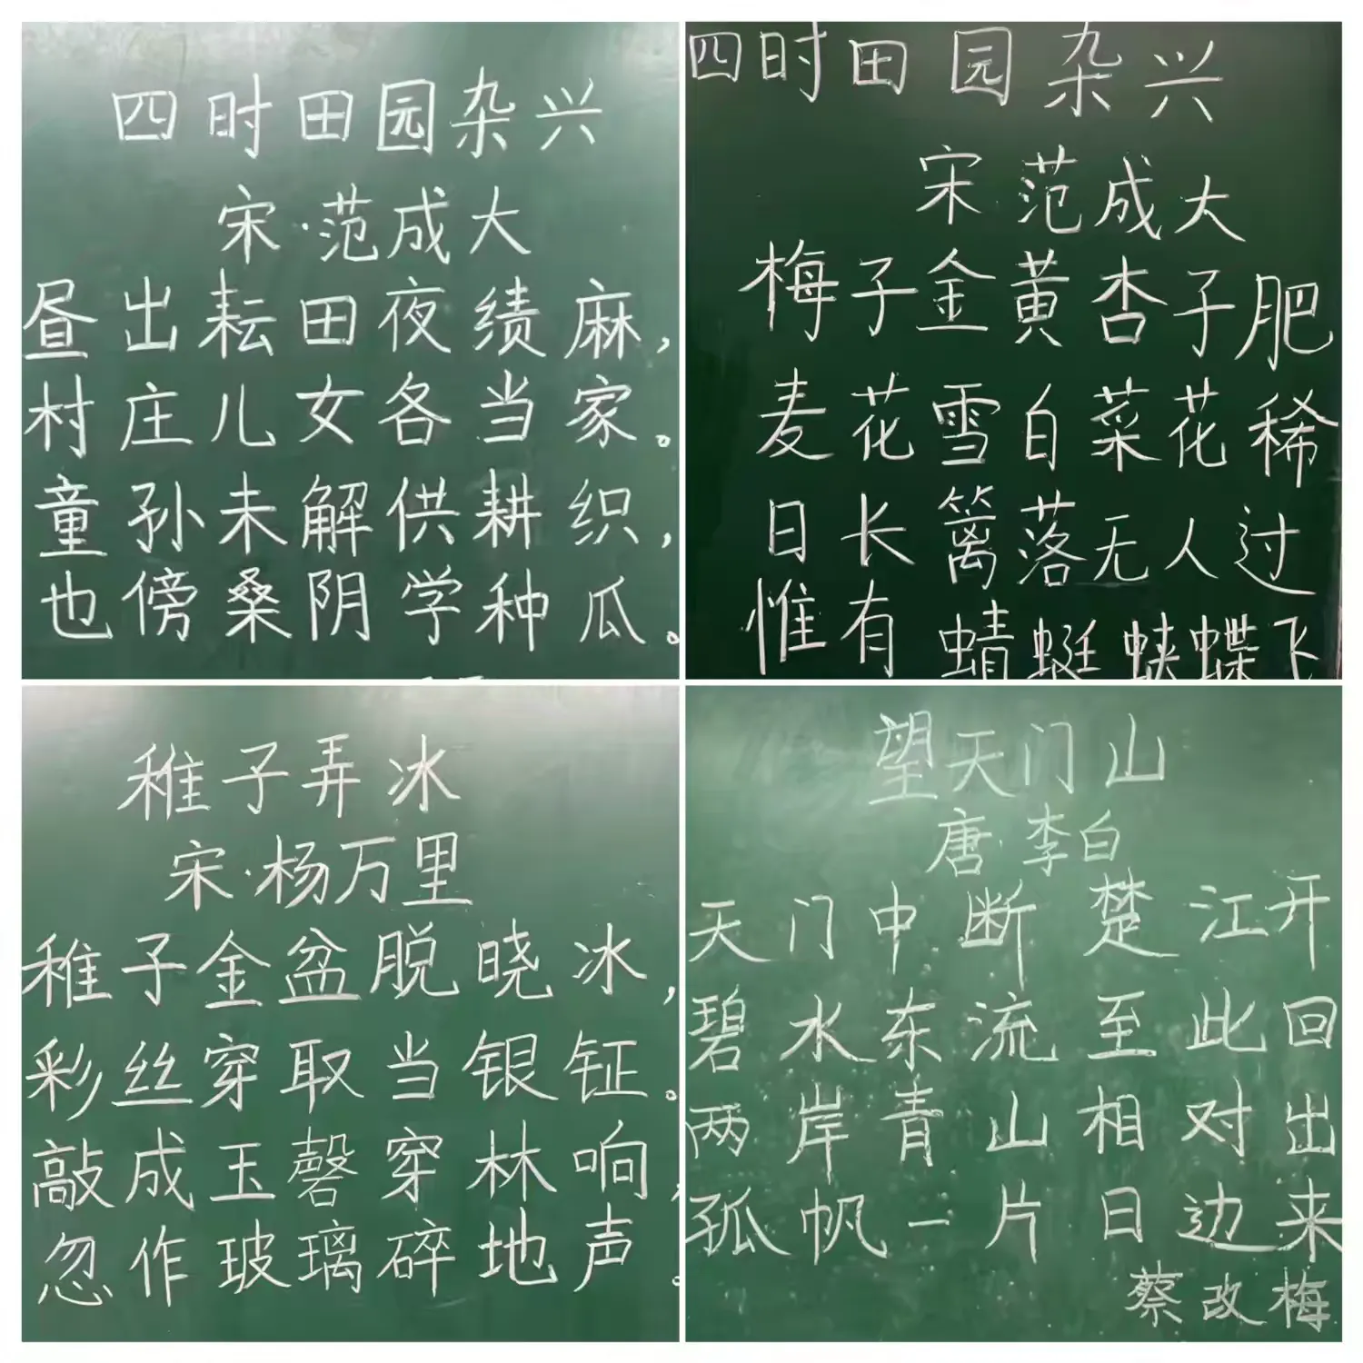 四时田园杂兴
宋·范成大
昼出耘田夜绩麻，
村庄儿女各当家。
童孙未解供耕织，
也傍桑阴学种瓜。
四时田园杂兴
宋 范成大
梅子金黄杏子肥
麦花雪白菜花稀
日长篱落无人过
惟有蜻蜓蛱蝶飞
稚子弄冰
宋·杨万里
稚子金盆脱晓冰，
彩丝穿取当银钲。
敲成玉磬穿林响，
忽作玻璃碎地声。
望天门山
唐·李白
天门中断楚江开
碧水东流至此回
两岸青山相对出
孤帆一片日边来
蔡改梅